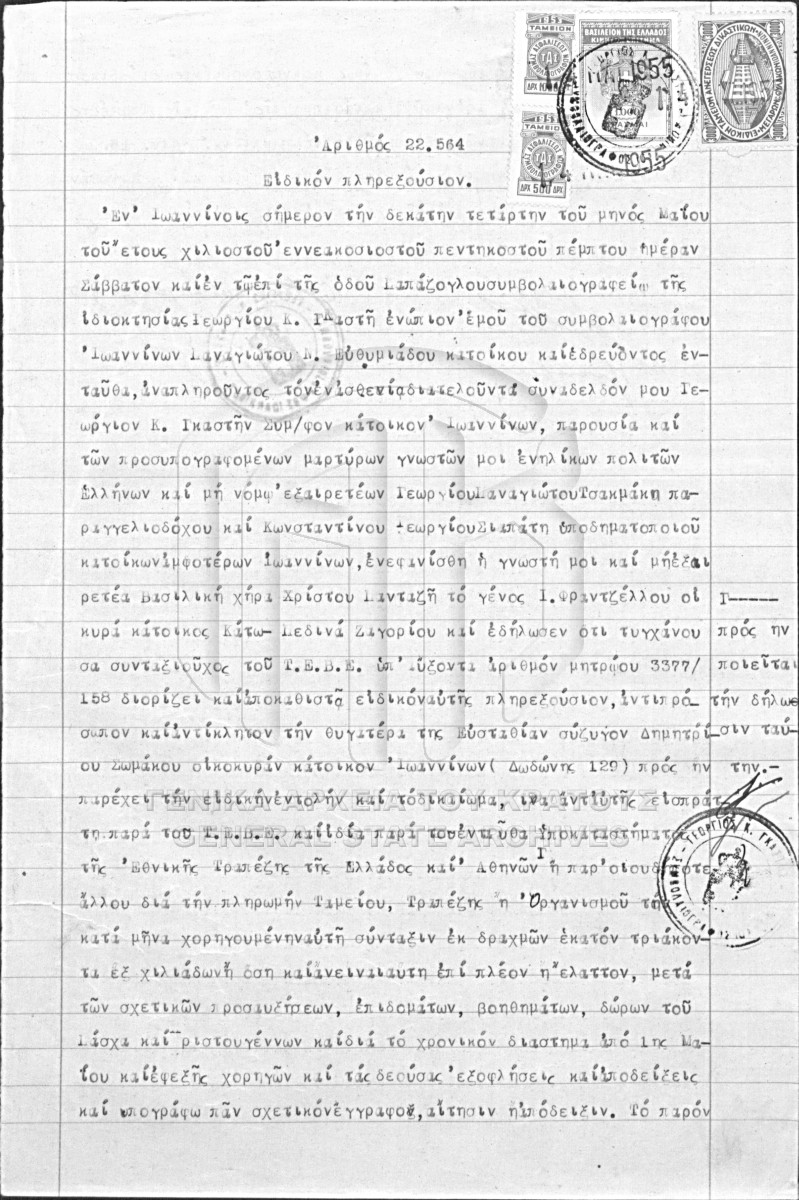 Ἀριθμός 22.564
Εἰδικόν πληρεξούσιον.
Ἐν Ἰωαννίνοις σήμερον τήν δεκάτην τετάρτην τοῦ μηνός Μαΐου
τοῦ ἔτους χιλιοστοῦ ἐννεακοσιοστοῦ πεντηκοστοῦ πέμπτου ἡμέραν
Σάββατον καί ἐν τῷ ἐπί τῆς ὁδοῦ Σαπάζογλου συμβολαιογραφείῳ τῆς
ἰδιοκτησίας Γεωργίου Κ. Γκαστῆ ἐνώπιον ἐμοῦ τοῦ συμβολαιογράφου
Ἰωαννίνων Παναγιώτου Κ. Εὐθυμιάδου κατοίκου καί ἑδρεύοντος ἐν-
ταῦθα, ἀναπληροῦντος τόν ἐν ἀσθενίᾳ διατελοῦντα συνάδελδόν μου Γε-
ώργιον Κ. Γκαστῆν Συμ/φον κάτοικον Ἰωαννίνων, παρουσία καί
τῶν προσυπογραφομένων μαρτύρων γνωστῶν μοι ἐνηλίκων πολιτῶν
Ἑλλήνων καί μή νόμῳ ἐξαιρετέων Γεωργίου Παναγιώτου Τσακμάκη πα-
ραγγελιοδόχου καί Κωνσταντίνου Γεωργίου Σιαπάτη ὑποδηματοποιοῦ
κατοίκων ἀμφοτέρων Ἰωαννίνων, ἐνεφανίσθη ἡ γνωστή μοι καί μή ἐξαι
ρετέα Βασιλική χήρα Χρίστου Πανταζῆ τό γένος Ι. Φραντζέλλου οἰ
κυρά κάτοικος Κάτω-Πεδινά Ζαγορίου καί ἐδήλωσεν ὅτι τυγχάνου
σα συνταξιοῦχος τοῦ Τ.Ε.Β.Ε. ὑπ' αὔξοντα ἀριθμόν μητρῴου 3377/
158 διορίζει καί ἀποκαθιστᾷ εἰδικόν αὐτῆς πληρεξούσιον, ἀντιπρό-
σωπον καί ἀντίκλητον τήν θυγατέρα της Εὐσταθίαν σύζυγον Δημητρί
ου Σωμάκου οἰκοκυράν κάτοικον Ἰωαννίνων( Δωδώνης 129) πρός ἥν
παρέχει τήν εἰδικήν ἐντολήν καί τό δικαίωμα, ἵνα ἀντ' αὐτῆς εἰσπράτ
τῃ παρά τοῦ Τ.Ε.Β.Ε. καί ἰδίᾳ παρά τοῦ ἐνταῦθα Ὑποκαταστήματος
τῆς Ἐθνικῆς Τραπέζης τῆς Ἑλλάδος καί Ἀθηνῶν Ι ἤ παρ' οἱουδήποτε
ἄλλου διά τήν πληρωμήν Ταμείου, Τραπέζης ἤ Ὀργανισμοῦ τήν
κατά μῆνα χορηγουμένην αὐτῇ σύνταξιν ἐκ δραχμῶν ἑκατόν τριάκον-
τα ἕξ χιλιάδων ἤ ὅση καί ἄν εἶναι αὕτη ἐπί πλέον ἤ ἔλαττον, μετά
τῶν σχετικῶν προσαυξήσεων, ἐπιδομάτων, βοηθημάτων, δώρων τοῦ
Πάσχα καί Χριστουγέννων καί διά τό χρονικόν διάστημα ἀπό 1ης Μα-
ΐου καί ἐφεξῆς χορηγῶν καί τάς δεούσας ἐξοφλήσεις καί ἀποδείξεις
καί ὑπογράφω πᾶν σχετικόν ἔγγραφον, αἴτησιν ἤ ἀπόδειξιν. Τό παρόν
Ι-----
πρός ἥν
ποιεῖται
τήν δήλω
σιν ταύ-
την.-
ΓΕΝΙΚΑ ΑΡΧΕΙΑ ΤΟΥ ΚΡΑΤΟΥΣ
GENERAL STATE ARCHIVES
1953
ΤΑΜΕΙΟΝ
ΤΑΣ
1953
ΤΑΜΕΙΟΝ
ΤΑΣ
ΔΡΧ 500 ΔΡΧ
ΒΑΣΙΛΕΙΟΝ ΤΗΣ ΕΛΛΑΔΟΣ
14 ΜΑΙ 1955
1955